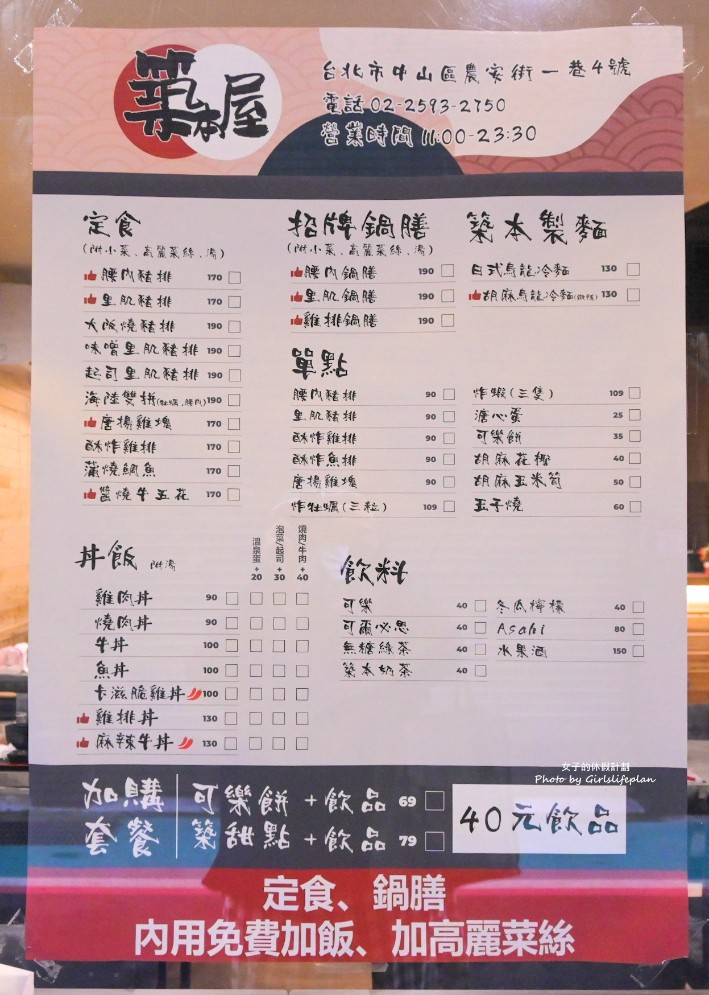 築本屋
台北市中山區農安街一巷4號
電話 02-2593-2750
營業時間 11:00-23:30
定食
(附小菜、高麗菜絲、湯)
腰內豬排 170
里肌豬排 170
大阪燒豬排 190
味噌里肌豬排 190
起司里肌豬排 190
海陸雙拼(牡蠣,腰內) 190
唐揚雞塊 170
酥炸雞排 170
蒲燒鯛魚 170
醬燒牛五花 170
招牌鍋膳
(附小菜、高麗菜絲、湯)
腰內鍋膳 190
里肌鍋膳 190
雞排鍋膳 190
築本製麵
日式烏龍冷麵 130
胡麻烏龍冷麵 130
單點
腰內豬排 90
里肌豬排 90
酥炸雞排 90
酥炸魚排 90
唐揚雞塊 90
炸牡蠣(三粒) 109
炸蝦(三隻) 109
溏心蛋 25
可樂餅 35
胡麻花椰 40
胡麻玉米筍 50
玉子燒 60
丼飯 附湯
溫泉蛋+20
泡菜/起司+30
燒肉/牛肉+40
雞肉丼 90
燒肉丼 90
牛丼 100
魚丼 100
卡滋脆雞丼 100
雞排丼 130
麻辣牛丼 130
飲料
可樂 40
可爾必思 40
無糖綠茶 40
築本奶茶 40
冬瓜檸檬 40
Asahi 80
水果酒 150
女子的休假計劃
Photo by Girlslifeplan
加購套餐
可樂餅+飲品 69
築甜點+飲品 79
40元飲品
定食、鍋膳
內用免費加飯、加高麗菜絲